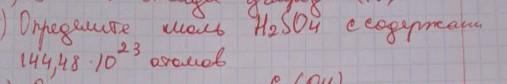 ) Определите моль H2SO4 с содержани
144,48 · 10^23 атомов